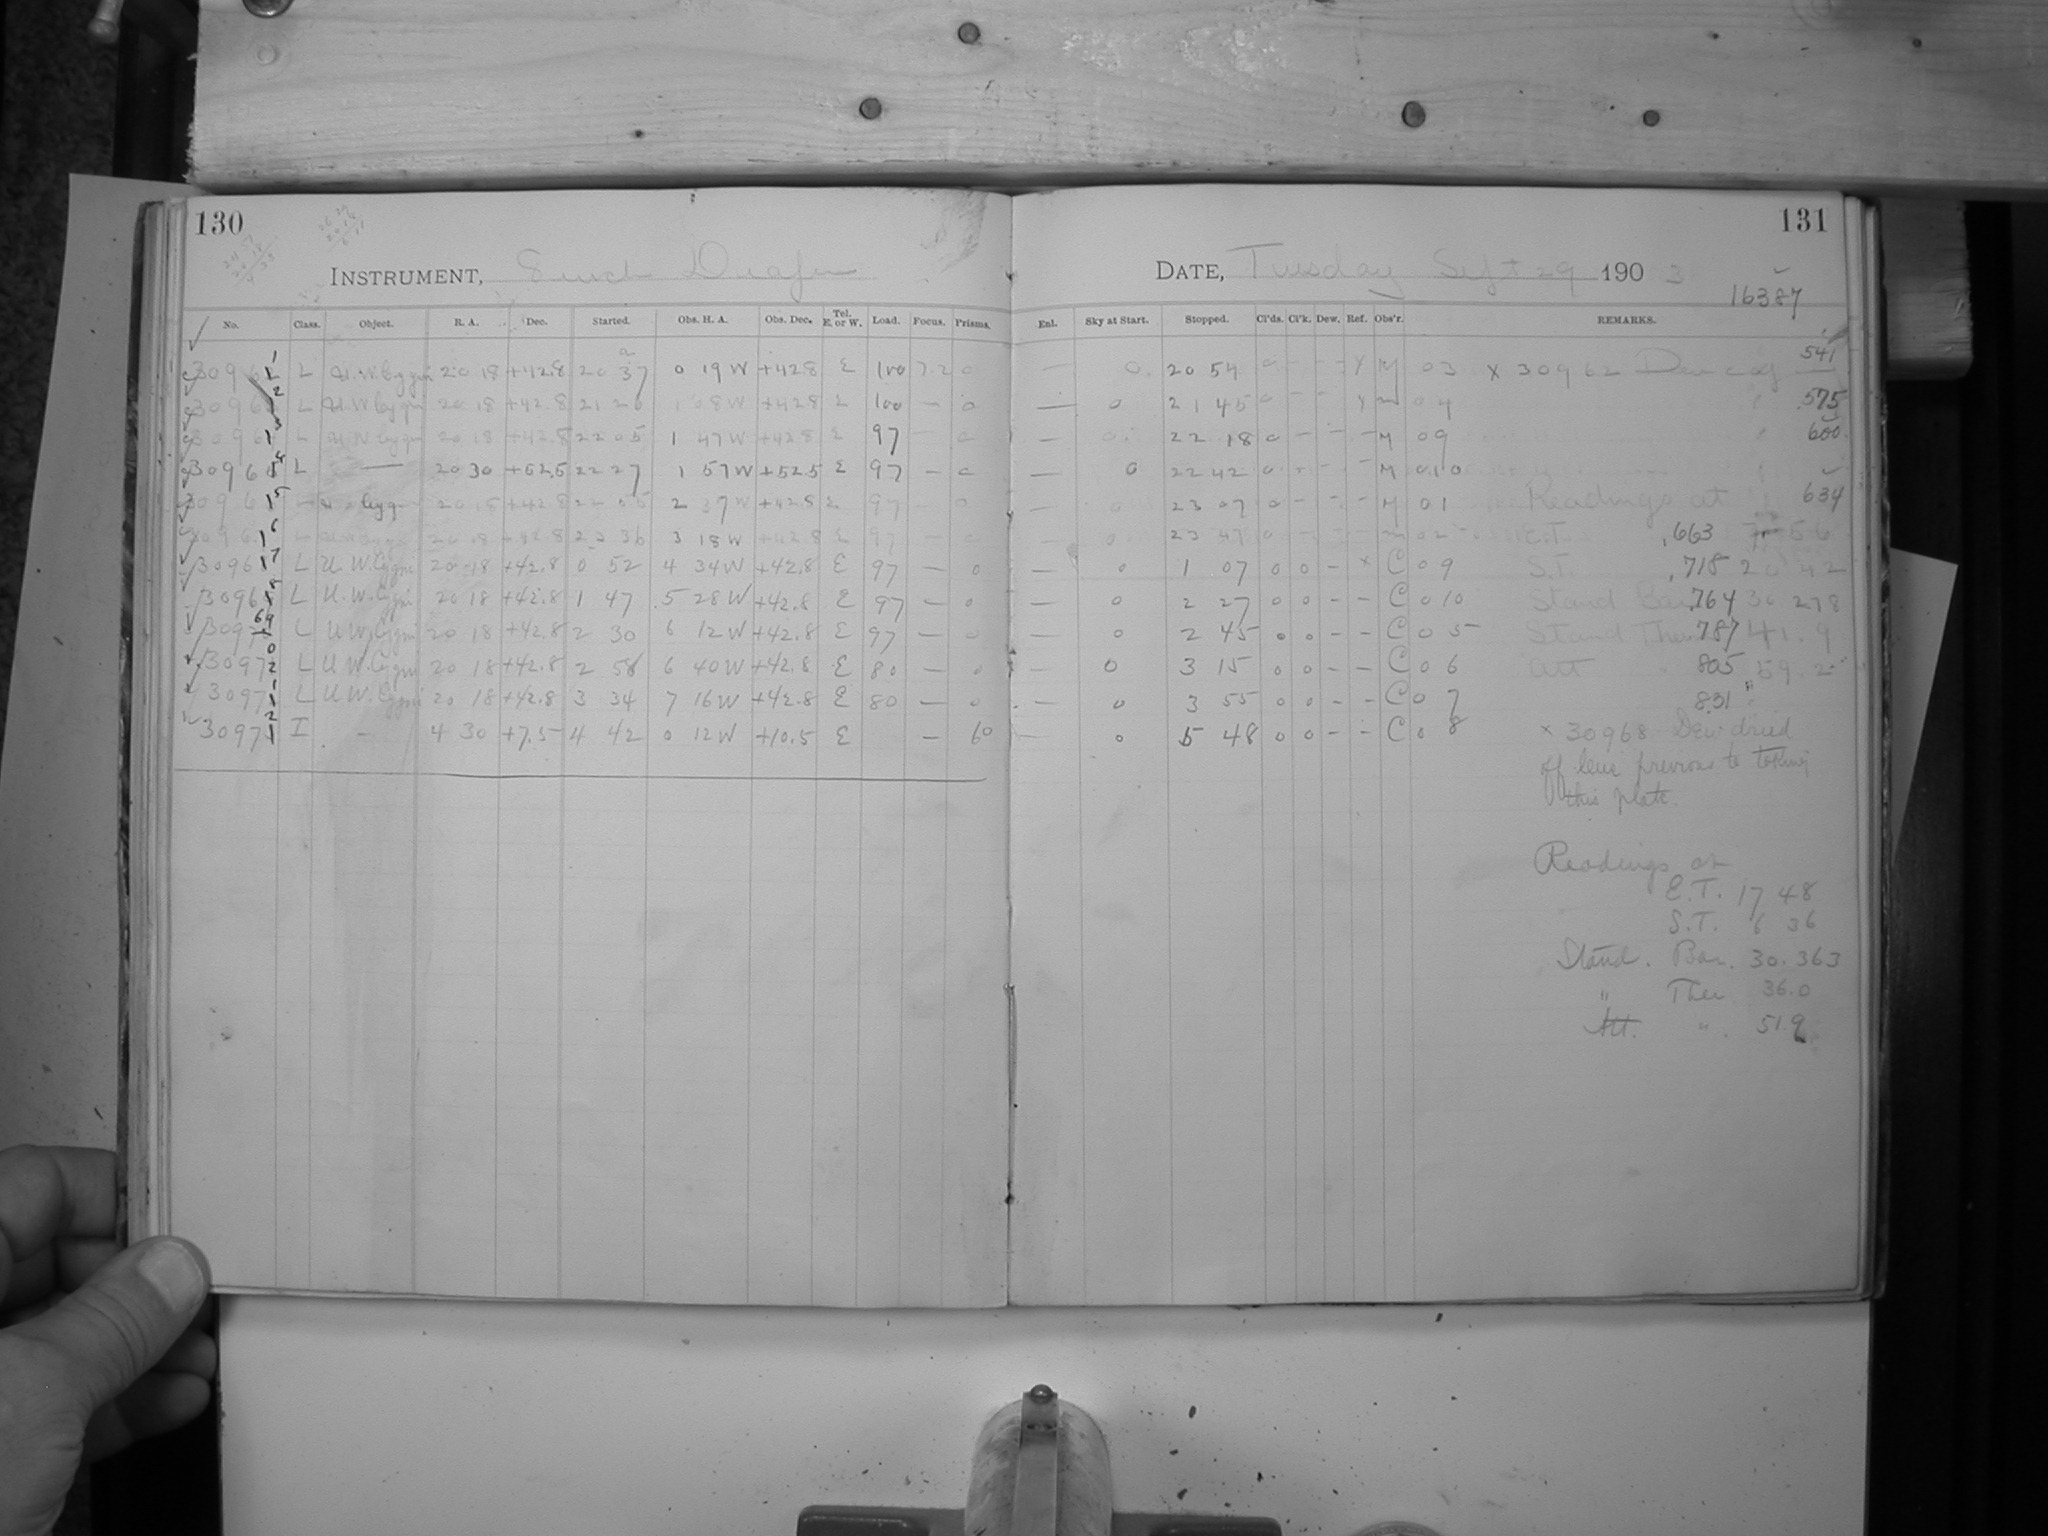 130
INSTRUMENT,
No. Class. Object. R. A. Dec. Started. Obs. H. A. Obs. Dec. Tel. E. or W. Load. Focus. Prisms.
L U.W. Cygni 20 18 +42.8 20 37 0 19 W +42.8 E 100 7.2 0
L U W Cygni 20 18 +42.8 21 26 1 08 W +42.8 E 100 – 0
L U W Cygni 20 18 +42.8 22 05 1 47 W +42.8 E 97 – 0
L — 20 30 +52.5 22 27 1 57 W +52.5 E 97 – 0
L Cygni 20 18 +42.8 22 55 2 37 W +42.8 E 97 – 0
L U W Cygni 20 18 +42.8 23 36 3 18 W +42.8 E 97 – 0
L U. W. Cygni 20 18 +42.8 0 52 4 34 W +42.8 E 97 – 0
L U. W. Cygni 20 18 +42.8 1 47 5 28 W +42.8 E 97 – 0
L U W. Cygni 20 18 +42.8 2 30 6 12 W +42.8 E 97 – 0
L U W. Cygni 20 18 +42.8 2 58 6 40 W +42.8 E 80 – 0
L U W. Cygni 20 18 +42.8 3 34 7 16 W +42.8 E 80 – 0
I – 4 30 +7.5 4 42 0 12 W +10.5 E – 60
131
DATE, Tuesday Sept 29 1903
16387
Enl. Sky at Start. Stopped. Cl'ds. Cl'k. Dew. Ref. Obs'r. REMARKS.
— 0 20 54 0 – – Y M 03 x 30962 541
— 0 21 45 0 – – Y M 04 575
— 0 22 18 0 – – – M 09 600
— 0 22 42 0 – – – M 010
0 23 07 0 – – – M 01 Readings at 634
0 23 47 0 – – – M 02 E.T. .663
— 0 1 07 0 0 – x C 09 S.T. .718 20 42
— 0 2 27 0 0 – – C 010 Stand Bar 764 30 278
— 0 2 45 0 0 – – C 05 Stand Ther 787 41.9
— 0 3 15 0 0 – – C 06 Att 805 59.2
— 0 3 55 0 0 – – C 07 831
— 0 5 48 0 0 – – C 08 x 30968 Dew dried
off lens previous to taking
this plate.
Readings at
E.T. 17 48
S.T. 6 36
Stand. Bar. 30.363
" Ther 36.0
Att. " 51.9